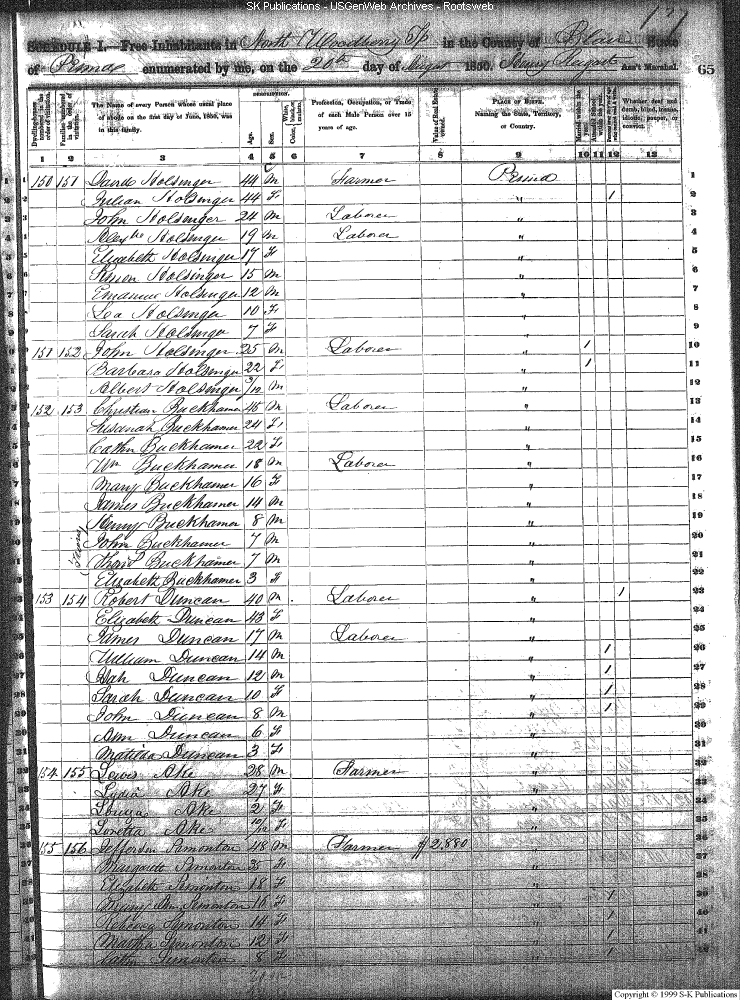 SK Publications - USGenWeb Archives - Rootsweb
SCHEDULE I.—Free Inhabitants in North Woodberry Tp in the County of Blair State
of Penna enumerated by me, on the 20th day of August 1850. Ass't Marshal. 65
Dwelling-houses numbered in the order of visitation.
Families numbered in the order of visitation.
The Name of every Person whose usual place of abode on the first day of June, 1850, was in this family.
DESCRIPTION.
Age.
Sex.
White, black, or mulatto.
Color
Profession, Occupation, or Trade of each Male Person over 15 years of age.
Value of Real Estate owned.
PLACE OF BIRTH.
Naming the State, Territory, or Country.
Married within the year.
Whether deaf and dumb, blind, insane, idiotic, pauper, or convict.
1 2 3 4 5 6 7 8 9 10 11 12 13
1 150 151 David Holsinger 44 M Farmer Penna 1
2 Julian Holsinger 44 F " 1 2
3 John Holsinger 24 M Laborer " 3
4 Alexdr Holsinger 19 M Laborer " 4
5 Elizabeth Holsinger 17 F " 5
6 Simon Holsinger 15 M " 6
7 Emanuel Holsinger 12 M " 7
8 Lea Holsinger 10 F " 8
9 Sarah Holsinger 7 F " 9
10 151 152 John Holsinger 25 M Laborer " 1 10
11 Barbara Holsinger 22 F " 1 11
12 Albert Holsinger 3/12 M " 12
13 152 153 Christian Buckhamer 45 M Laborer " 13
14 Susanah Buckhamer 24 F " 14
15 Cathn Buckhamer 22 F " 15
16 Wm Buckhamer 18 M Laborer " 16
17 Mary Buckhamer 16 F " 17
18 James Buckhamer 14 M " 18
19 Henry Buckhamer 8 M " 19
20 Twins John Buckhamer 7 M " 20
21 Buckhamer 7 M " 21
22 Elizabeth Buckhamer 3 F " 22
23 153 154 Robert Duncan 40 M Laborer " 1 23
24 Elizabeth Duncan 43 F " 24
25 James Duncan 17 M Laborer " 25
26 William Duncan 14 M " 1 26
27 Duncan 12 M " 1 27
28 Sarah Duncan 10 F " 1 28
29 John Duncan 8 M " 1 29
30 Ann Duncan 6 F " 30
31 Matilda Duncan 3 F " 31
32 154 155 Lewis Ake 28 M Farmer " 32
33 Lydia Ake 27 F " 33
34 Ake 2 F " 34
35 Loretta Ake 10/12 F " 35
36 155 156 Jefferson Simonton 48 M Farmer $2,880 " 36
37 Margarett Simonton 35 F " 37
38 Elizabeth Simonton 18 F " 38
39 Mary Ann Simonton 16 F " 1 39
40 Rebecca Simonton 14 F " 1 40
41 Martha Simonton 12 F " 1 41
42 Cathn Simonton 8 F " 1 42
Copyright © 1999 S-K Publications